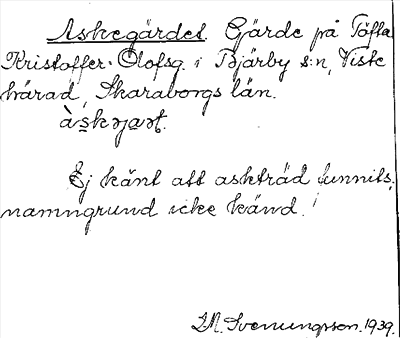 Askegärdet. Gärde på Töfta
Kristoffer-Olofsg. i Bjärby s:n, Viste
härad, Skaraborgs län.
àskɲaʈ.
Ej känt att askträd funnits,
namngrund icke känd.
I.M. Svenungsson. 1939.